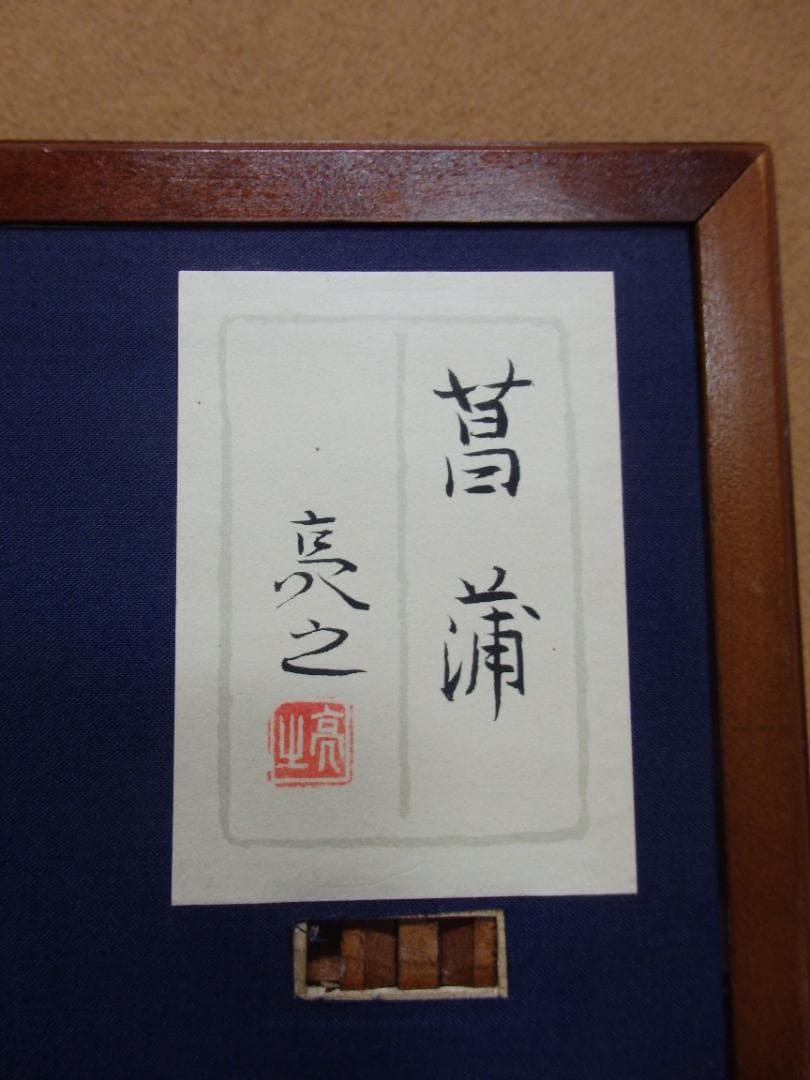 菖蒲
亮之
亮之